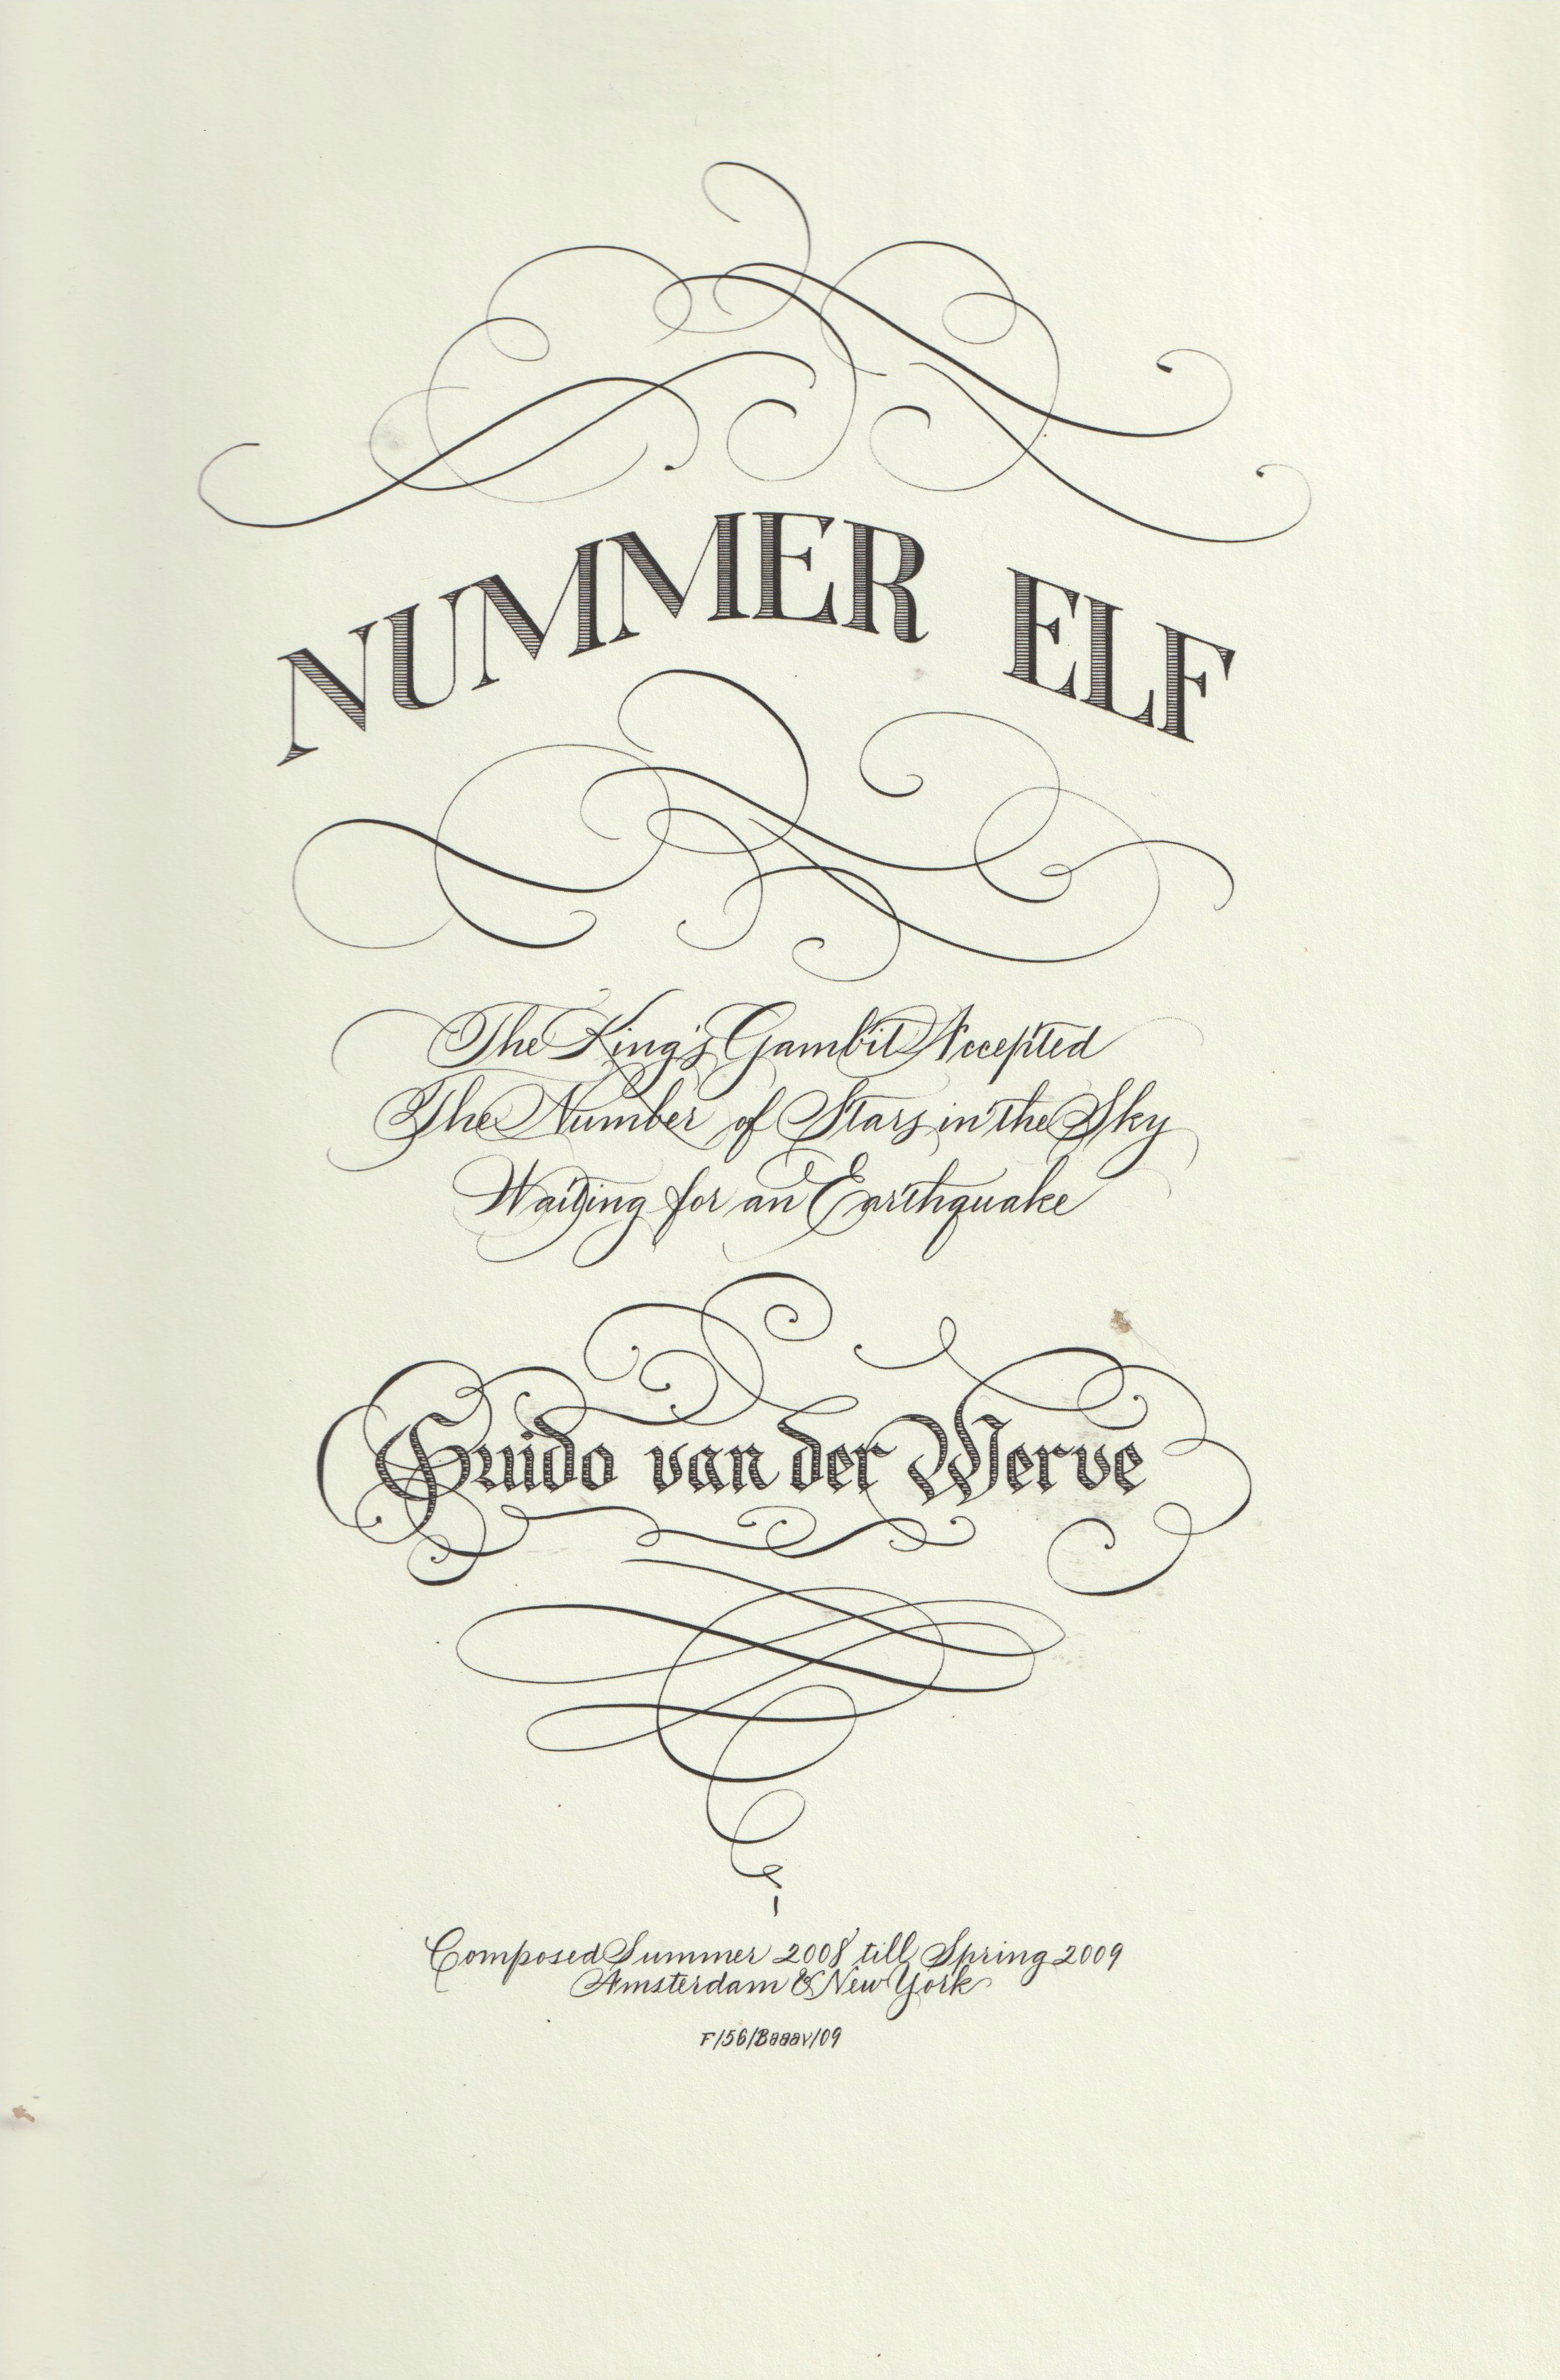 NUMMER ELF
The King's Gambit Accepted
The Number of Stars in the Sky
Waiting for an Earthquake
Guido van der Werve
Composed Summer 2008 till Spring 2009
Amsterdam & New York
F/56/Baaav/09